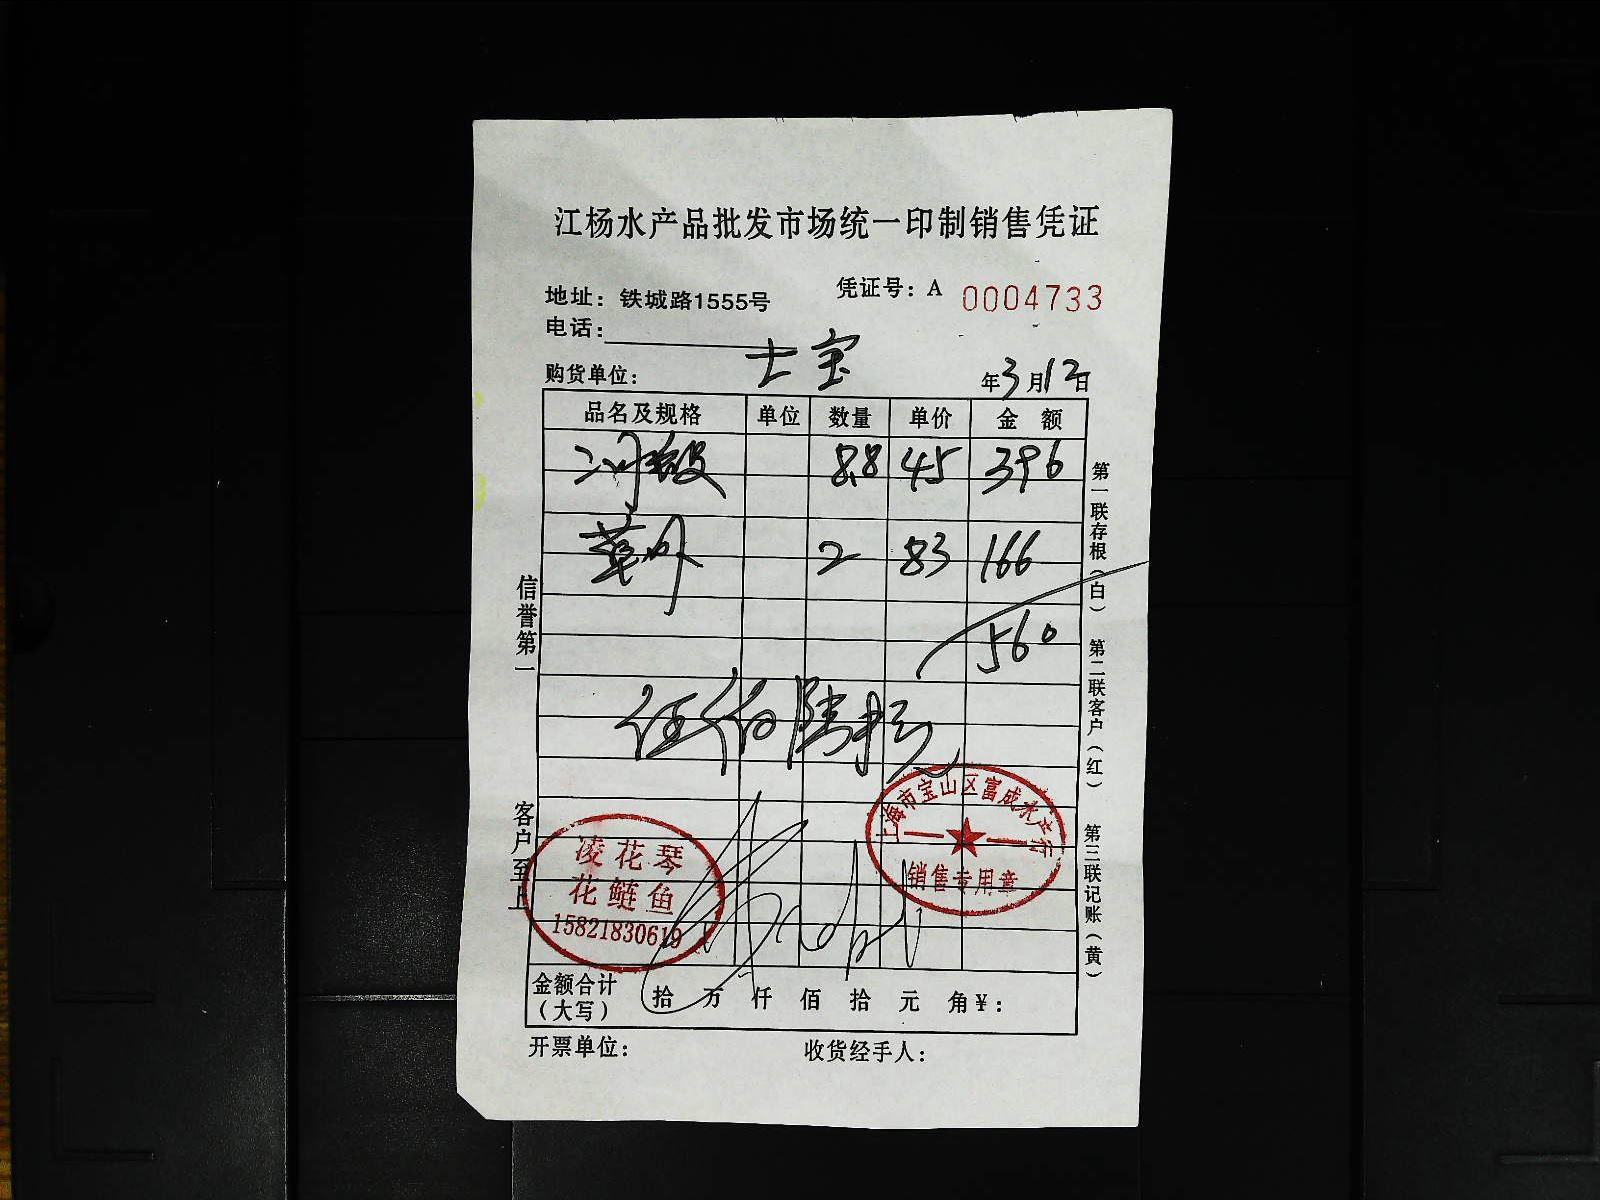 江杨水产品批发市场统一印制销售凭证
凭证号：A 0004733
地址：铁城路1555号
电话：
购货单位： 士宝
年3月12日
品名及规格 单位 数量 单价 金额
8.8 45 396
2 83 166
560
伍佰陆拾元
上海市宝山区富成水产行
销售专用章
凌花琴
花鲢鱼
15821830619
金额合计（大写） 拾 万 仟 佰 拾 元 角￥：
开票单位： 收货经手人：
信誉第一 客户至上
第一联存根（白） 第二联客户（红） 第三联记账（黄）